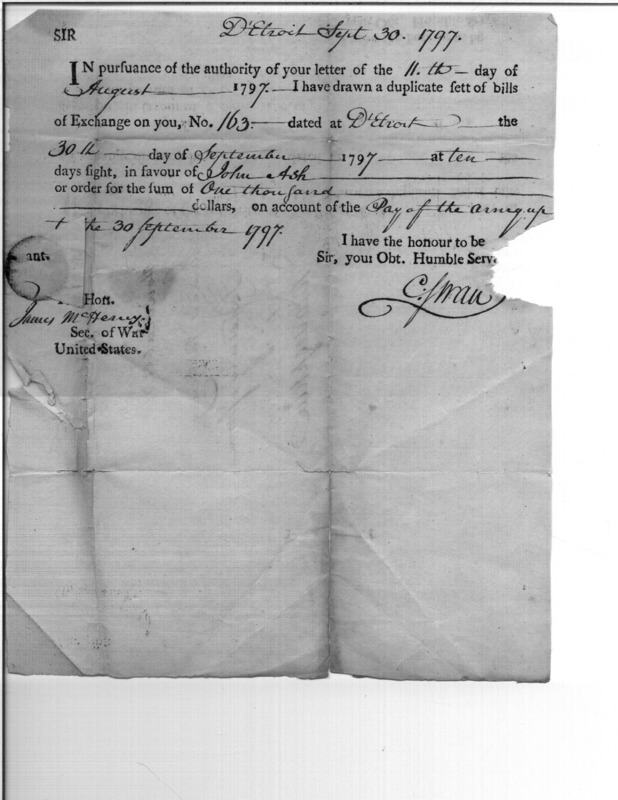 SIR D'Etroit Sept 30. 1797.
IN purſuance of the authority of your letter of the 11.th day of
August 1797 I have drawn a duplicate ſett of bills
of Exchange on you, No. 163 dated at D'Etroit the
30th day of September 1797 at ten
days ſight, in favour of John Ash
or order for the ſum of One thousand
dollars, on account of the Pay of the army up
t he 30 september 1797.
I have the honour to be
Sir, your Obt. Humble Serv
ant.
C. Swan
Hon.
James McHenry
Sec. of War
United States.